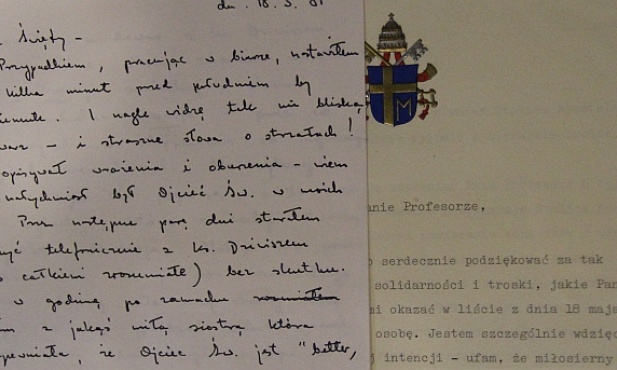 dn. 18.5.81
Święty -
Przypadkiem, pracując w biurze, nastawiłem
kilka minut przed południem by
I nagle widzę tak mi bliską
twarz - i straszne słowa o strzałach!
opisywał wrażenia i oburzenia - wiem
natychmiast był Ojciec Św. w moich
Przez następne parę dni starłem
telefonicznie z ks. Dziwiszem
całkiem zrozumiałe) bez skutku.
w godzinę po zamachu
z jakąś miłą siostrą która
że Ojciec Św. jest "better,
M
anie Profesorze,
o serdecznie podziękować za tak
solidarności i troski, jakie Pan
mi okazać w liście z dnia 18 maja
osobę. Jestem szczególnie wdzięc
j intencji - ufam, że miłosierny